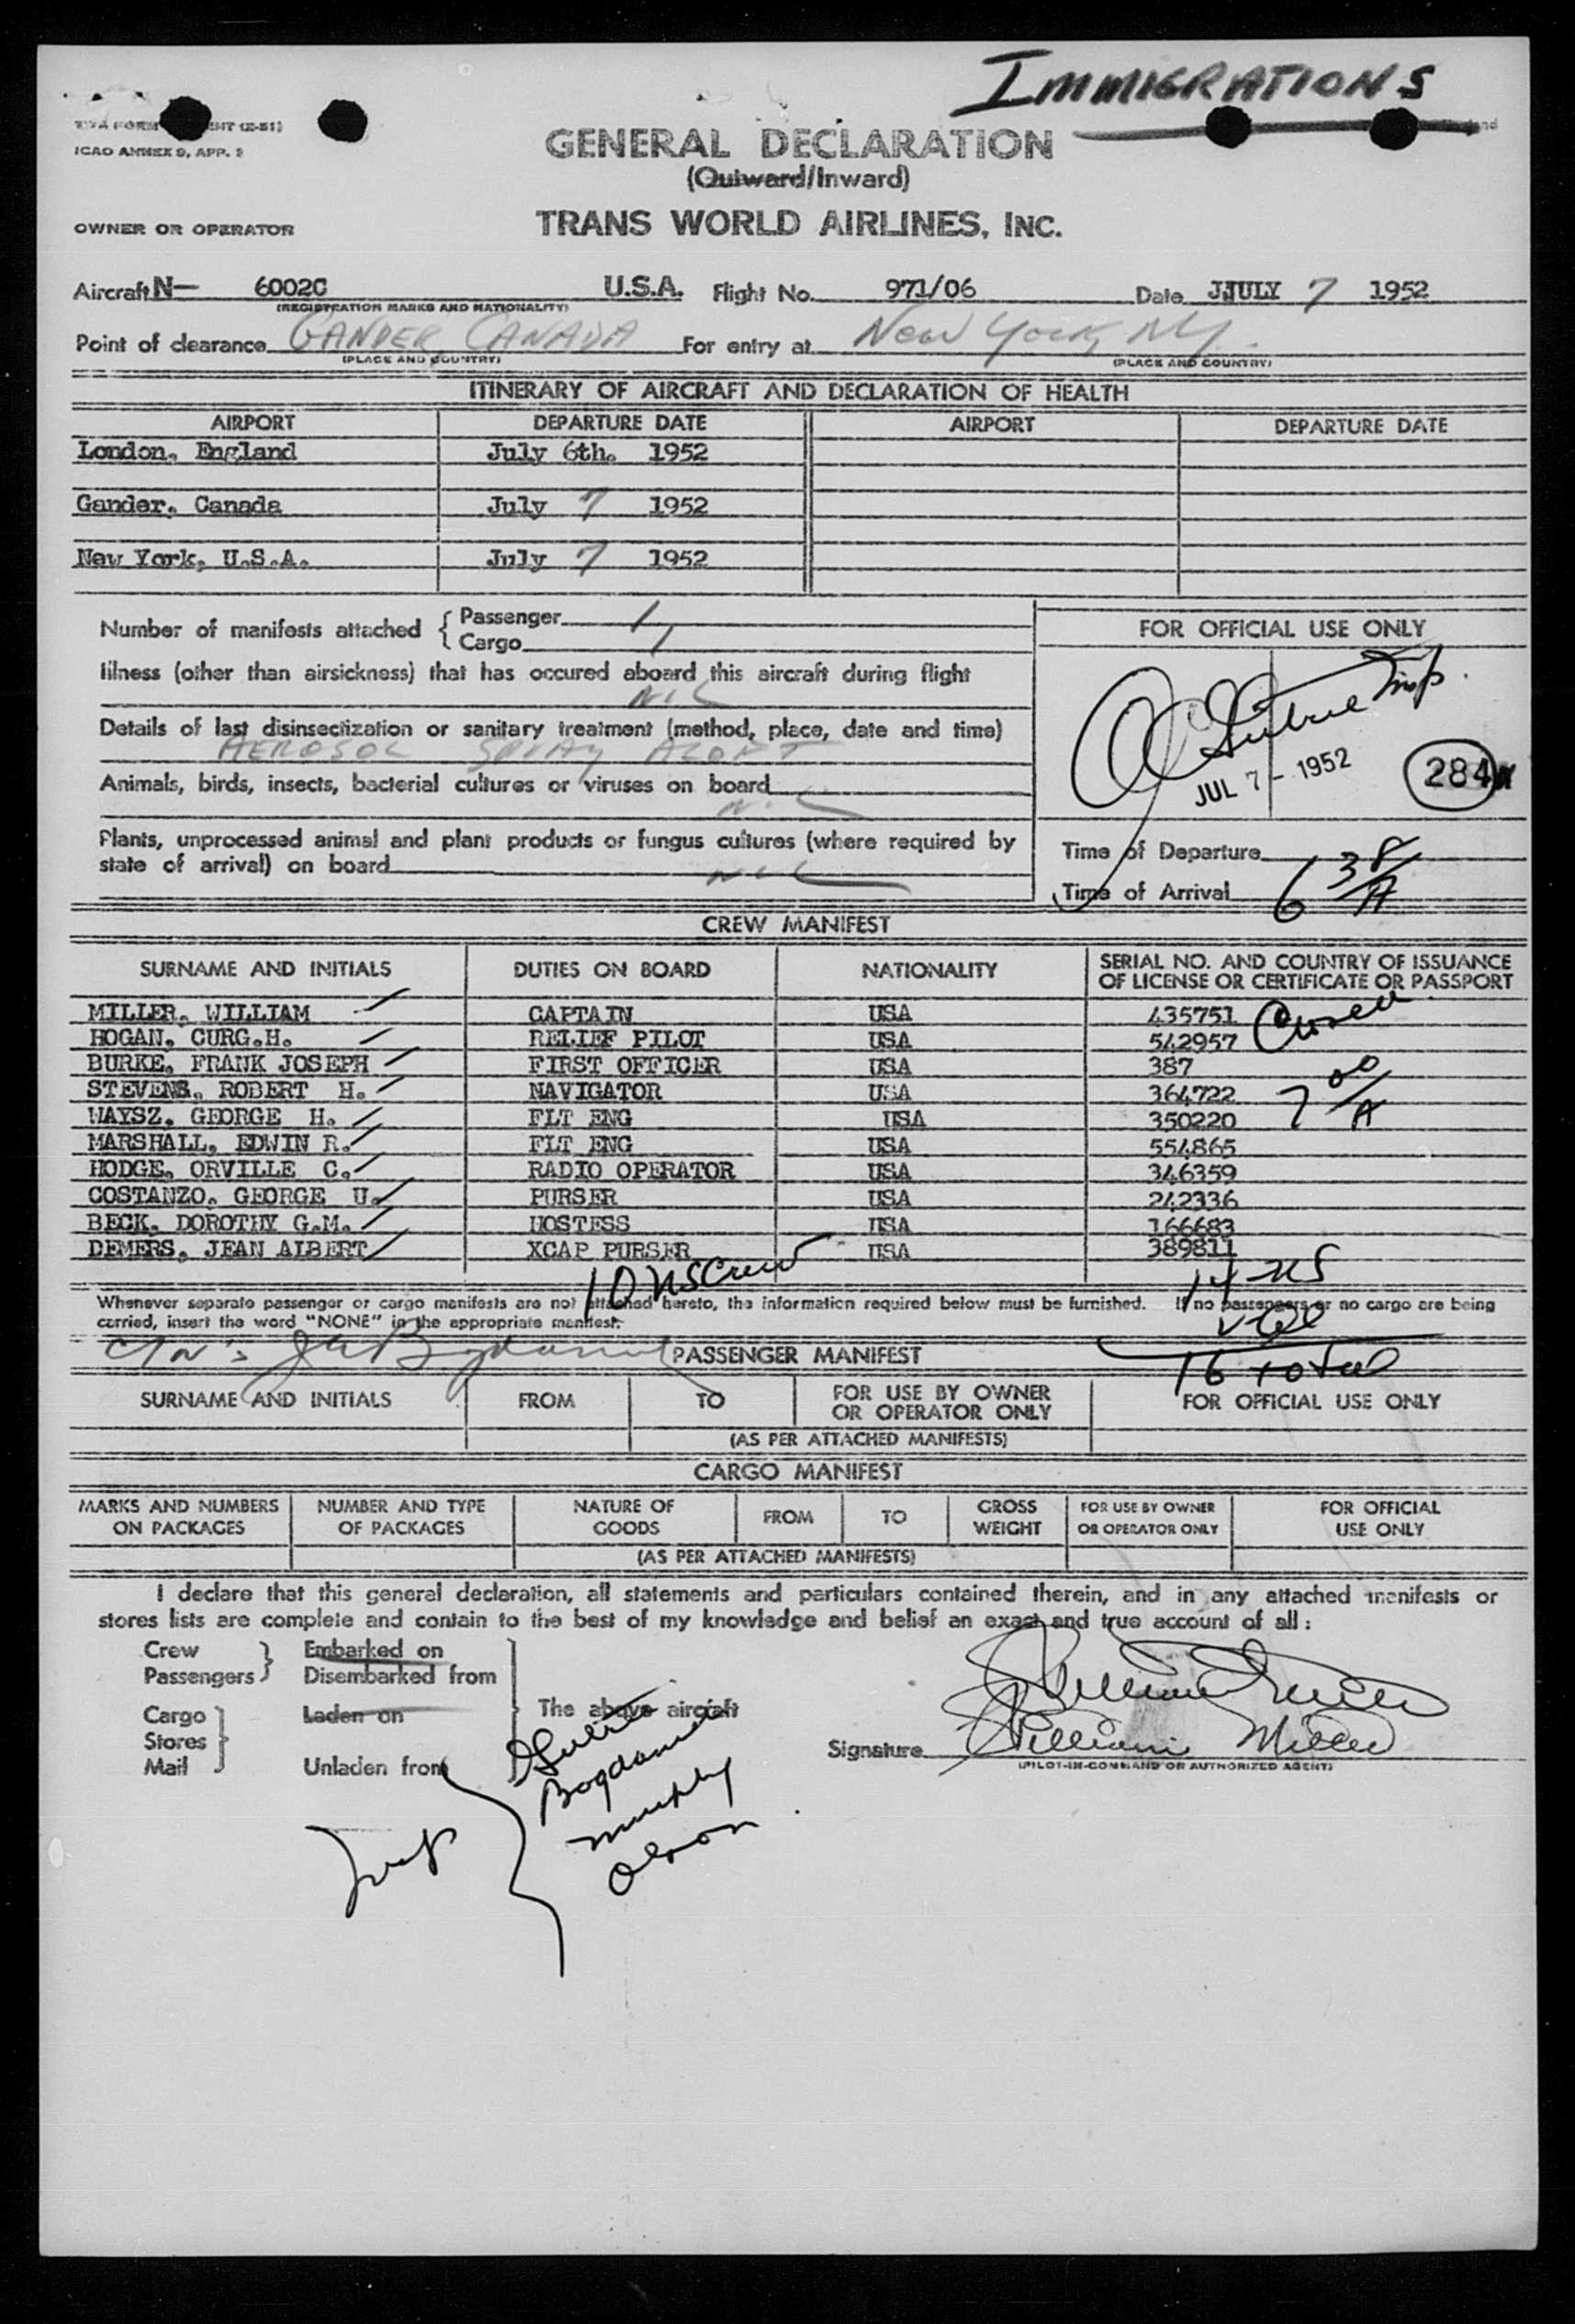 IMMIGRATIONS
ICAO ANNEX 9, APP.
GENERAL DECLARATION
(Outward/Inward)
OWNER OR OPERATOR TRANS WORLD AIRLINES, INC.
Aircraft N— 6002C U.S.A. Flight No. 971/06 Date JJULY 7 1952
(REGISTRATION MARKS AND NATIONALITY)
Point of clearance GANDER CANADA For entry at New York, NY.
(PLACE AND COUNTRY) (PLACE AND COUNTRY)
ITINERARY OF AIRCRAFT AND DECLARATION OF HEALTH
AIRPORT DEPARTURE DATE AIRPORT DEPARTURE DATE
London, England July 6th. 1952
Gander, Canada July 7 1952
New York, U.S.A. July 7 1952
Number of manifests attached { Passenger 1
Cargo 1
Illness (other than airsickness) that has occured aboard this aircraft during flight
NIL
Details of last disinsectization or sanitary treatment (method, place, date and time)
AEROSOL SPRAY ALOFT
Animals, birds, insects, bacterial cultures or viruses on board
NIL
Plants, unprocessed animal and plant products or fungus cultures (where required by
state of arrival) on board NIL
FOR OFFICIAL USE ONLY
JUL 7 - 1952
284
Time of Departure
Time of Arrival 6 38/A
CREW MANIFEST
SURNAME AND INITIALS DUTIES ON BOARD NATIONALITY SERIAL NO. AND COUNTRY OF ISSUANCE OF LICENSE OR CERTIFICATE OR PASSPORT
MILLER, WILLIAM CAPTAIN USA 435751
HOGAN, CURG.H. RELIEF PILOT USA 542957
BURKE, FRANK JOSEPH FIRST OFFICER USA 387
STEVENS, ROBERT H. NAVIGATOR USA 364722
WAYSZ, GEORGE H. FLT ENG USA 350220 7 00/A
MARSHALL, EDWIN R. FLT ENG USA 554865
HODGE, ORVILLE C. RADIO OPERATOR USA 346359
COSTANZO, GEORGE U. PURSER USA 242336
BECK, DOROTHY G.M. HOSTESS USA 166683
DEMERS, JEAN ALBERT XCAP PURSER USA 389811
10 US Crew 14 US
Whenever separate passenger or cargo manifests are not attached hereto, the information required below must be furnished. If no passengers or no cargo are being
carried, insert the word "NONE" in the appropriate manifest.
PASSENGER MANIFEST
16 total
SURNAME AND INITIALS FROM TO FOR USE BY OWNER OR OPERATOR ONLY FOR OFFICIAL USE ONLY
(AS PER ATTACHED MANIFESTS)
CARGO MANIFEST
MARKS AND NUMBERS ON PACKAGES NUMBER AND TYPE OF PACKAGES NATURE OF GOODS FROM TO GROSS WEIGHT FOR USE BY OWNER OR OPERATOR ONLY FOR OFFICIAL USE ONLY
(AS PER ATTACHED MANIFESTS)
I declare that this general declaration, all statements and particulars contained therein, and in any attached manifests or
stores lists are complete and contain to the best of my knowledge and belief an exact and true account of all:
Crew Embarked on
Passengers Disembarked from
Cargo Laden on The above aircraft
Stores
Mail Unladen from
William Miller
Signature William Miller
(PILOT-IN-COMMAND OR AUTHORIZED AGENT)
Bogdanul
Murphy
Olson